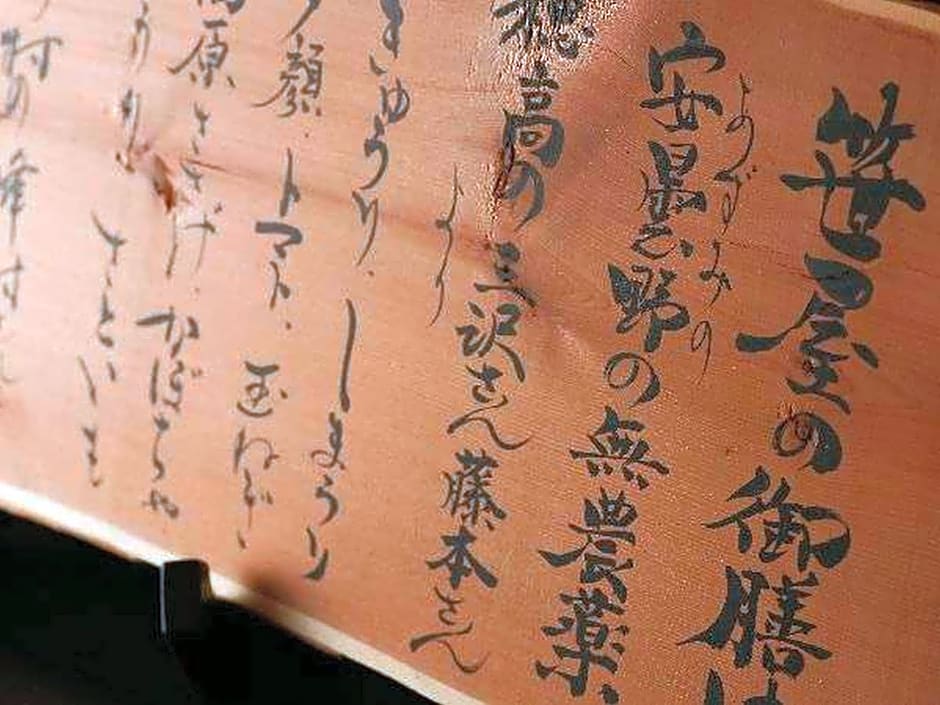 笹屋の御膳は
安曇野の無農薬、
よのずみの
穂高の三沢さん藤本さん
より
きゅうり、しまうり
夕顔、トマト、玉ねぎ、
高原ささげ、かぼちゃ
うり、さといも
村の峰村さん